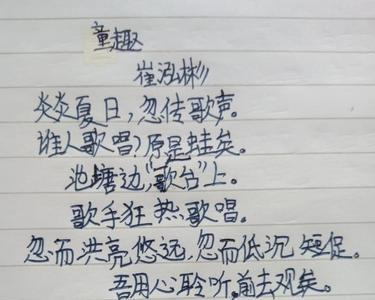 童趣
崔泓彬
炎炎夏日，忽传歌声。
谁人歌唱？原是蛙矣。
池塘边，“歌台”上。
歌手狂热歌唱。
忽而洪亮悠远，忽而低沉短促。
吾用心聆听。前去观矣。